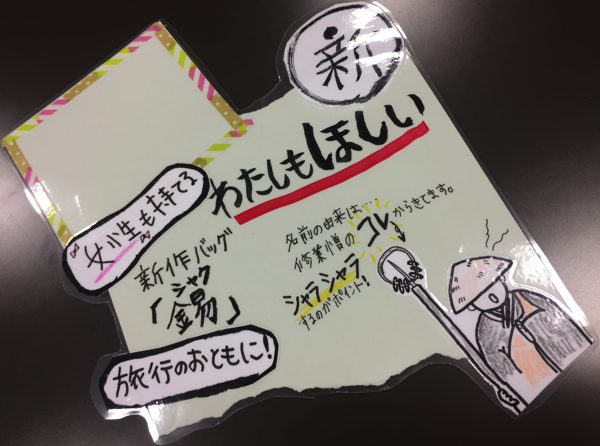 新
わたしもほしい
女性も持てる
名前の由来は・・・
修業僧のコレからきてます。
新作バッグ
シャク
「錫」
シャラシャラ
するのがポイント!
旅行のおともに!